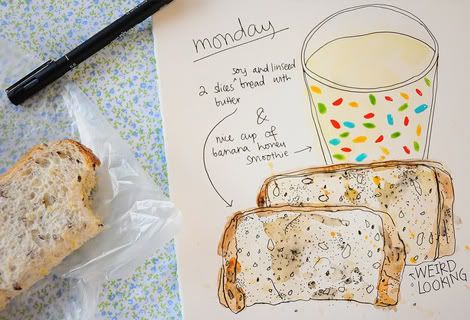 monday
soy and linseed
2 slices ^ bread with
butter
&
nice cup of
banana honey
smoothie
WEIRD
LOOKING